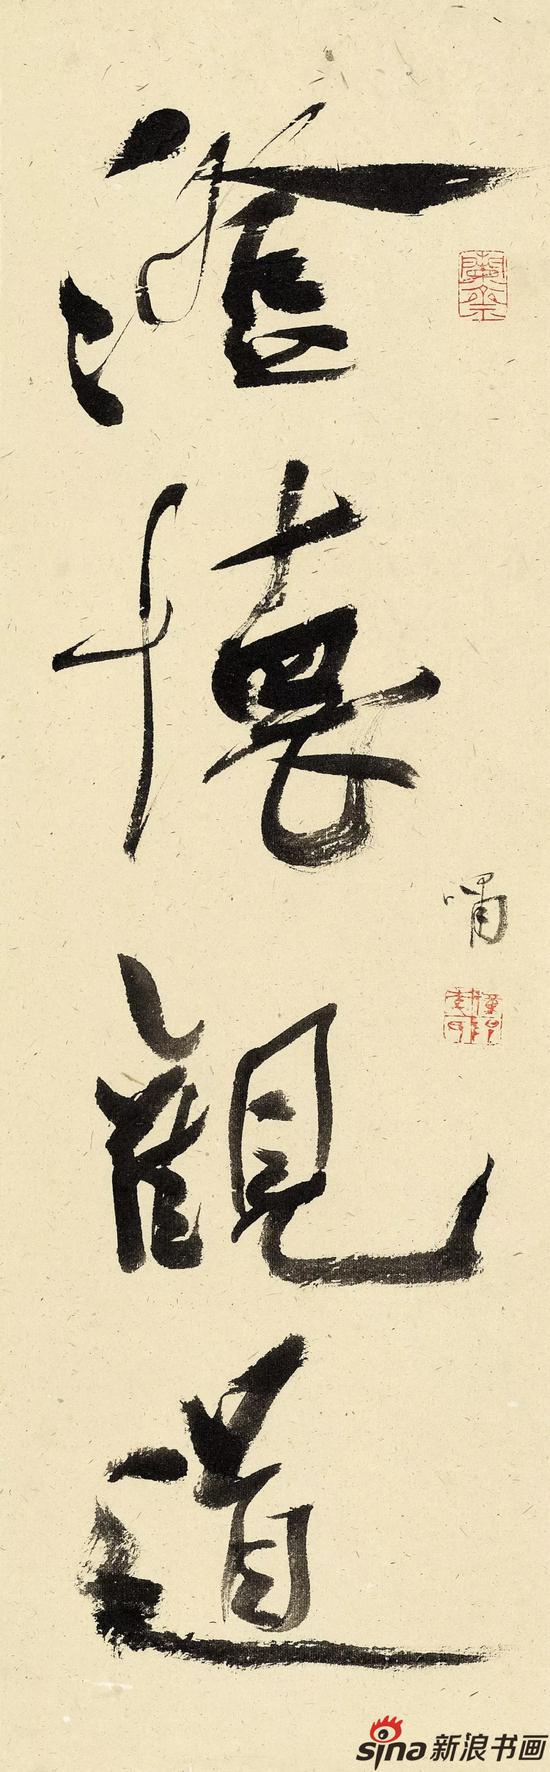 澄懷觀道
嘯
sina新浪书画